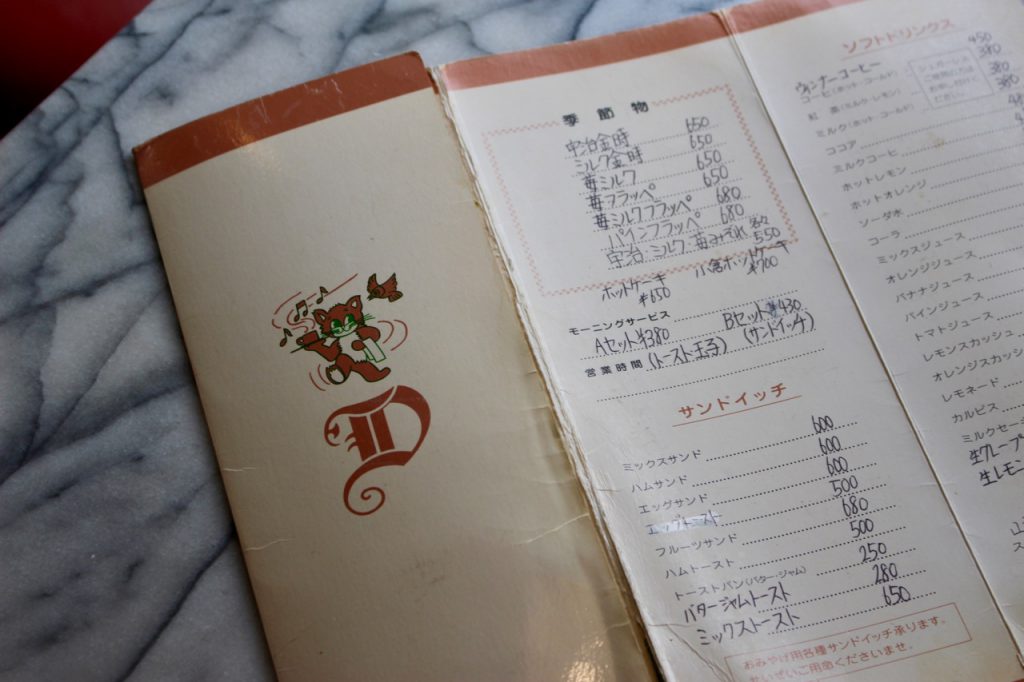 D
季節物
宇治金時 650
ミルク金時 650
苺ミルク 650
苺フラッペ 650
苺ミルクフラッペ 680
パインフラッペ 680
宇治・ミルク・苺みぞれ 各々 550
ホットケーキ ¥650
小倉ホットケーキ ¥700
モーニングサービス
Aセット¥380 Bセット¥430
営業時間 (トースト玉子) (サンドイッチ)
サンドイッチ
ミックスサンド 600
ハムサンド 600
エッグサンド 600
エッグトースト 500
フルーツサンド 680
ハムトースト 500
トーストパン(バター・ジャム) 250
バタージャムトースト 280
ミックストースト 650
おみやげ用各種サンドイッチ承ります。
ぜいぜいご用命くださいませ。
ソフトドリンクス
ウィンナーコーヒー 450
コーヒ(ホット・コールド) 380
紅茶(ミルク・レモン) 380
ミルク(ホット・コールド) 380
ココア
ミルクコーヒ
ホットレモン
ホットオレンジ
ソーダ水
コーラ
ミックスジュース
オレンジジュース
バナナジュース
パインジュース
トマトジュース
レモンスカッシュ
オレンジスカッシ
レモネード
カルピス
ミルクセー
生グレープ
生レモン